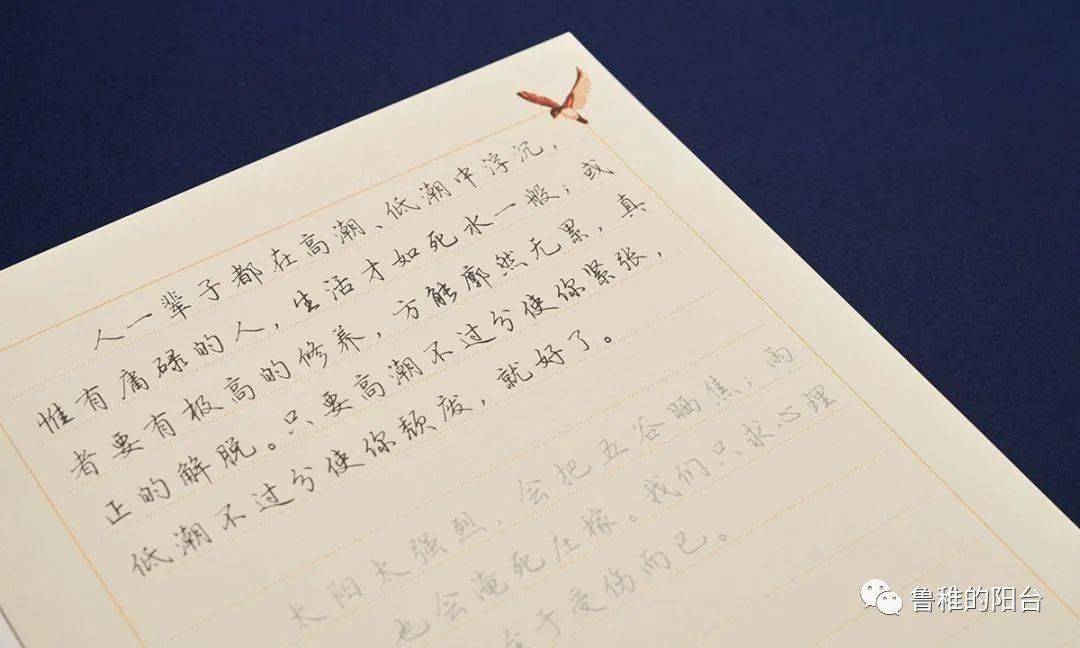 人一辈子都在高潮、低潮中浮沉，
惟有庸碌的人，生活才如死水一般；或
者要有极高的修养，方能廓然无累，真
正的解脱。只要高潮不过分使你紧张，
低潮不过分使你颓废，就好了。
太阳太强烈，会把五谷晒焦；雨
也会淹死庄稼。我们只求心理
至于受伤而已。
鲁稚的阳台